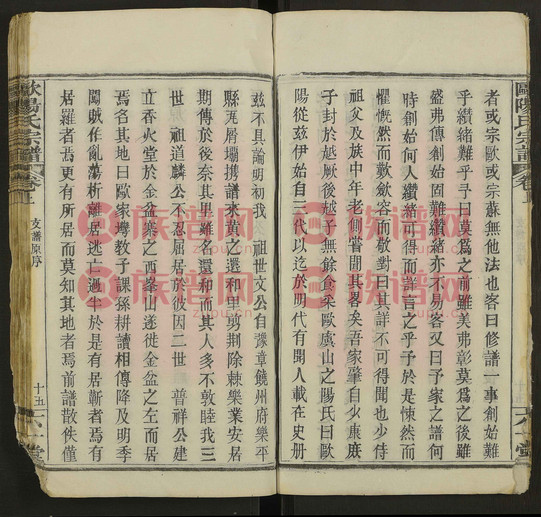 者或宗歐或宗蘇無他法也客曰修譜一事創始難
乎纘緒難乎予曰莫為之前雖美弗彰莫為之後雖
盛弗傳創始固難纘緒亦不易客又曰予家之譜何
時創始何人纘緒可得而詳言之乎予於是悚然而
懼慨然而歎歛容而敬對曰其詳不可得聞也少侍
祖父及族中年老側嘗聞其畧矣吾家肇自少康庶
子封於越厥後越子無餘食采歐虞山之陽氏曰歐
陽從茲伊始自三代以迄於明代有聞人載在史册
茲不具論明初我 祖世文公自豫章饒州府樂平
縣瓦屑壩攜譜來黃之還和里剪荊除棘樂業安居
期傳於後奈其里雖名還和而其人多不敦睦我三
世 祖道麟公不忍屈居於彼因二世 普祥公建
立香火堂於金盆寨之西峯山遂徙金盆之左而居
焉名其地曰歐家灣教子課孫耕讀相傳降及明季
闖賊作亂蕩析離居逃亡過半於是有居蘄者焉有
居羅者焉更有所居而莫知其地者焉前譜散佚僅
歐陽氏宗譜
支譜原序
十五
六一堂
歐陽氏宗譜
六一堂
族谱网
zupu.cn